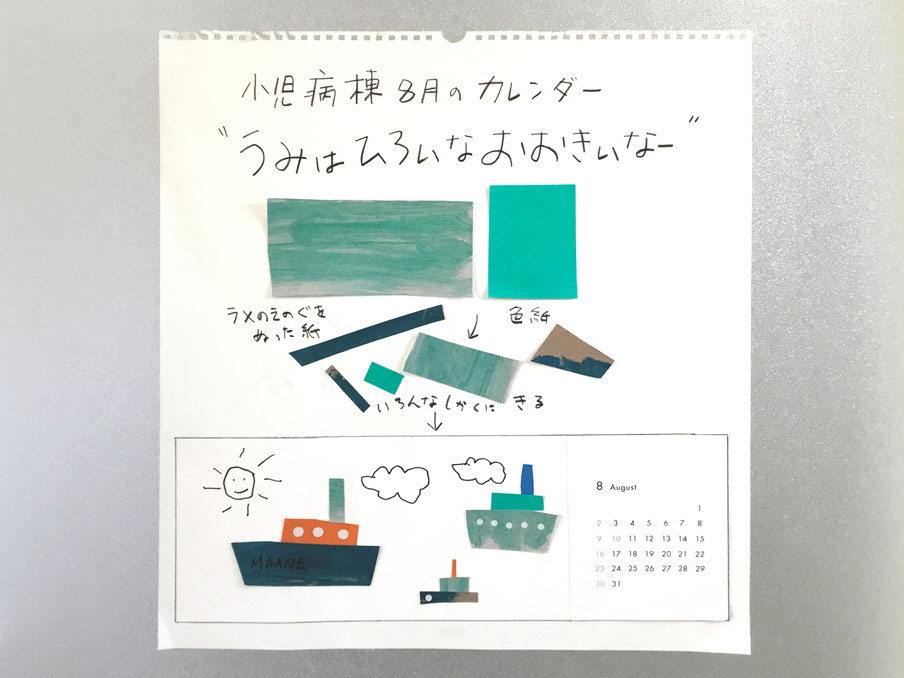 小児病棟 8月の カレンダー
"うみはひろいなおおきいなー"
ラメのえのぐを
ぬった紙
色紙
いろんなしかくに きる
MAANE
8 August
1
2 3 4 5 6 7 8
9 10 11 12 13 14 15
16 17 18 19 20 21 22
23 24 25 26 27 28 29
30 31